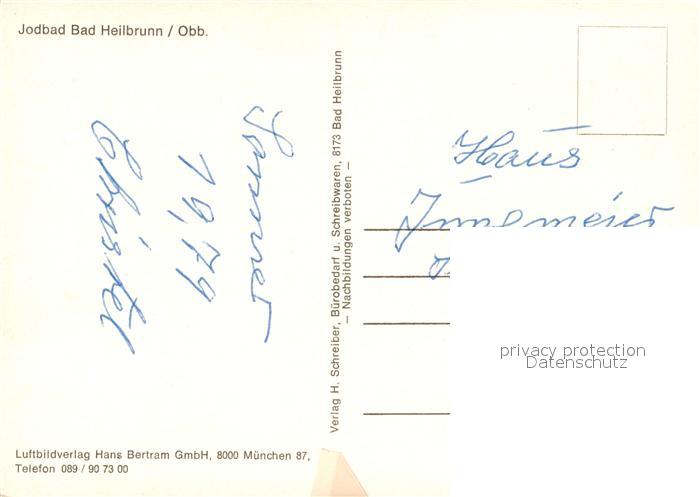 Jodbad Bad Heilbrunn / Obb.
Sommer
1979
Verlag H. Schreiber, Bürobedarf u. Schreibwaren, 8173 Bad Heilbrunn
– Nachbildungen verboten –
Haus
privacy protection
Datenschutz
Luftbildverlag Hans Bertram GmbH, 8000 München 87,
Telefon 089 / 90 73 00